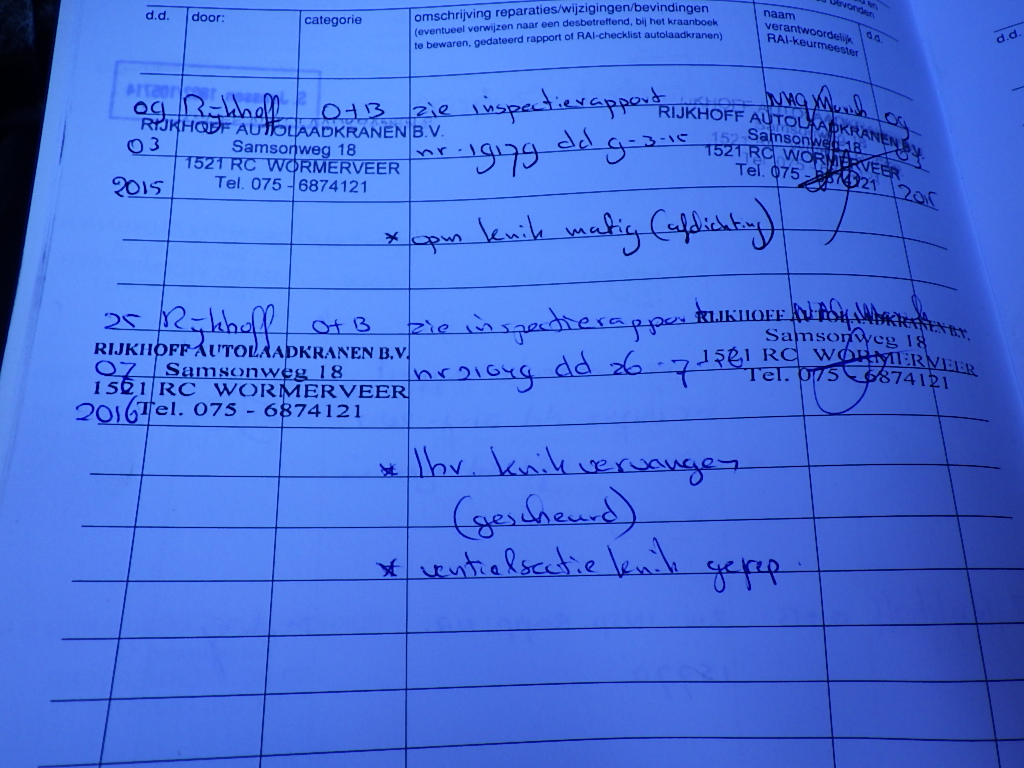 d.d. door: categorie omschrijving reparaties/wijzigingen/bevindingen naam d.d. d.d.
(eventueel verwijzen naar een desbetreffend, bij het kraanboek verantwoordelijk
te bewaren, gedateerd rapport of RAI-checklist autolaadkranen) RAI-keurmeester
09 Rijkhoff O+B zie inspectierapport 09
RIJKHOFF AUTOLAADKRANEN B.V. RIJKHOFF AUTOLAADKRANEN B.V.
03 Samsonweg 18 nr. 19179 dd 9-3-15 Samsonweg 18
1521 RC WORMERVEER 1521 RC WORMERVEER
2015 Tel. 075 - 6874121 Tel. 075 - 6874121 2015
* opm knik matig (afdichting)
25 Rijkhoff O+B zie inspectierapport RIJKHOFF AUTOLAADKRANEN B.V.
RIJKHOFF AUTOLAADKRANEN B.V. Samsonweg 18
07 Samsonweg 18 nr 21049 dd 26-7- 1521 RC WORMERVEER
1521 RC WORMERVEER Tel. 075 - 6874121
2016 Tel. 075 - 6874121
* lbv. knik vervangen
(gescheurd)
* ventielsectie knik gerep.